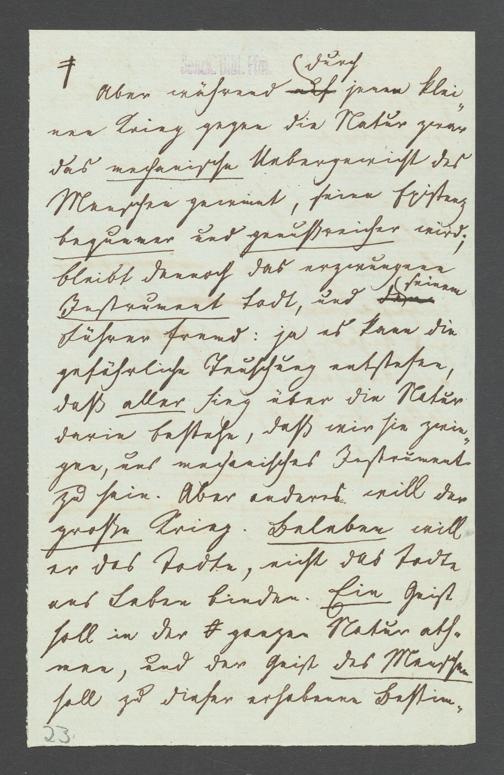 Senck. Bibl. Ffm.
durch
Aber während auf jenem klei-
nen Krieg gegen die Natur zwar
das mechanische Uebergewicht des
Menschen gewinnt, seine Existenz
bequemer und genußreicher wird;
bleibt dennoch das erzwungene
seinem
Instrument todt, und dem
Führer fremd: ja es kann die
gefährliche Teuschung entstehen,
daß aller Sieg über die Natur
darin bestehe, daß wir sie zwin-
gen, uns mechanisches Instrument
zu sein. Aber anderes will der
große Krieg. Beleben will
er das Todte, nicht das todte
ans Leben binden. Ein Geist
soll in der ganzen Natur ath-
men, und der Geist des Menschen
soll zu dieser erhabenen Bestim-
23.